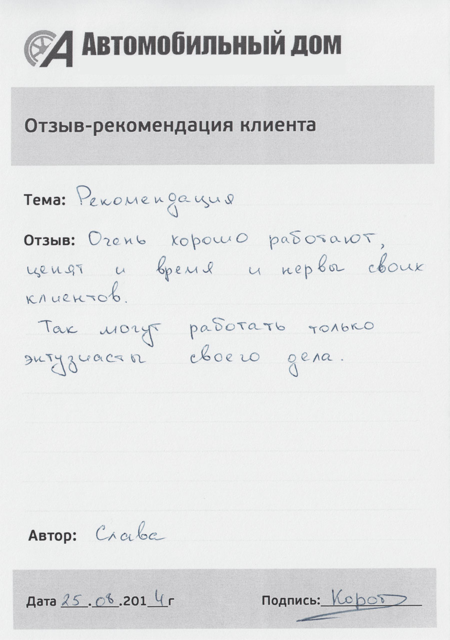 Автомобильный дом
Отзыв-рекомендация клиента
Тема: Рекомендация
Отзыв: Очень хорошо работают,
ценят и время и нервы своих
клиентов.
Так могут работать только
энтузиасты своего дела.
Автор: Слава
Дата 25.08.2014г Подпись: Корот